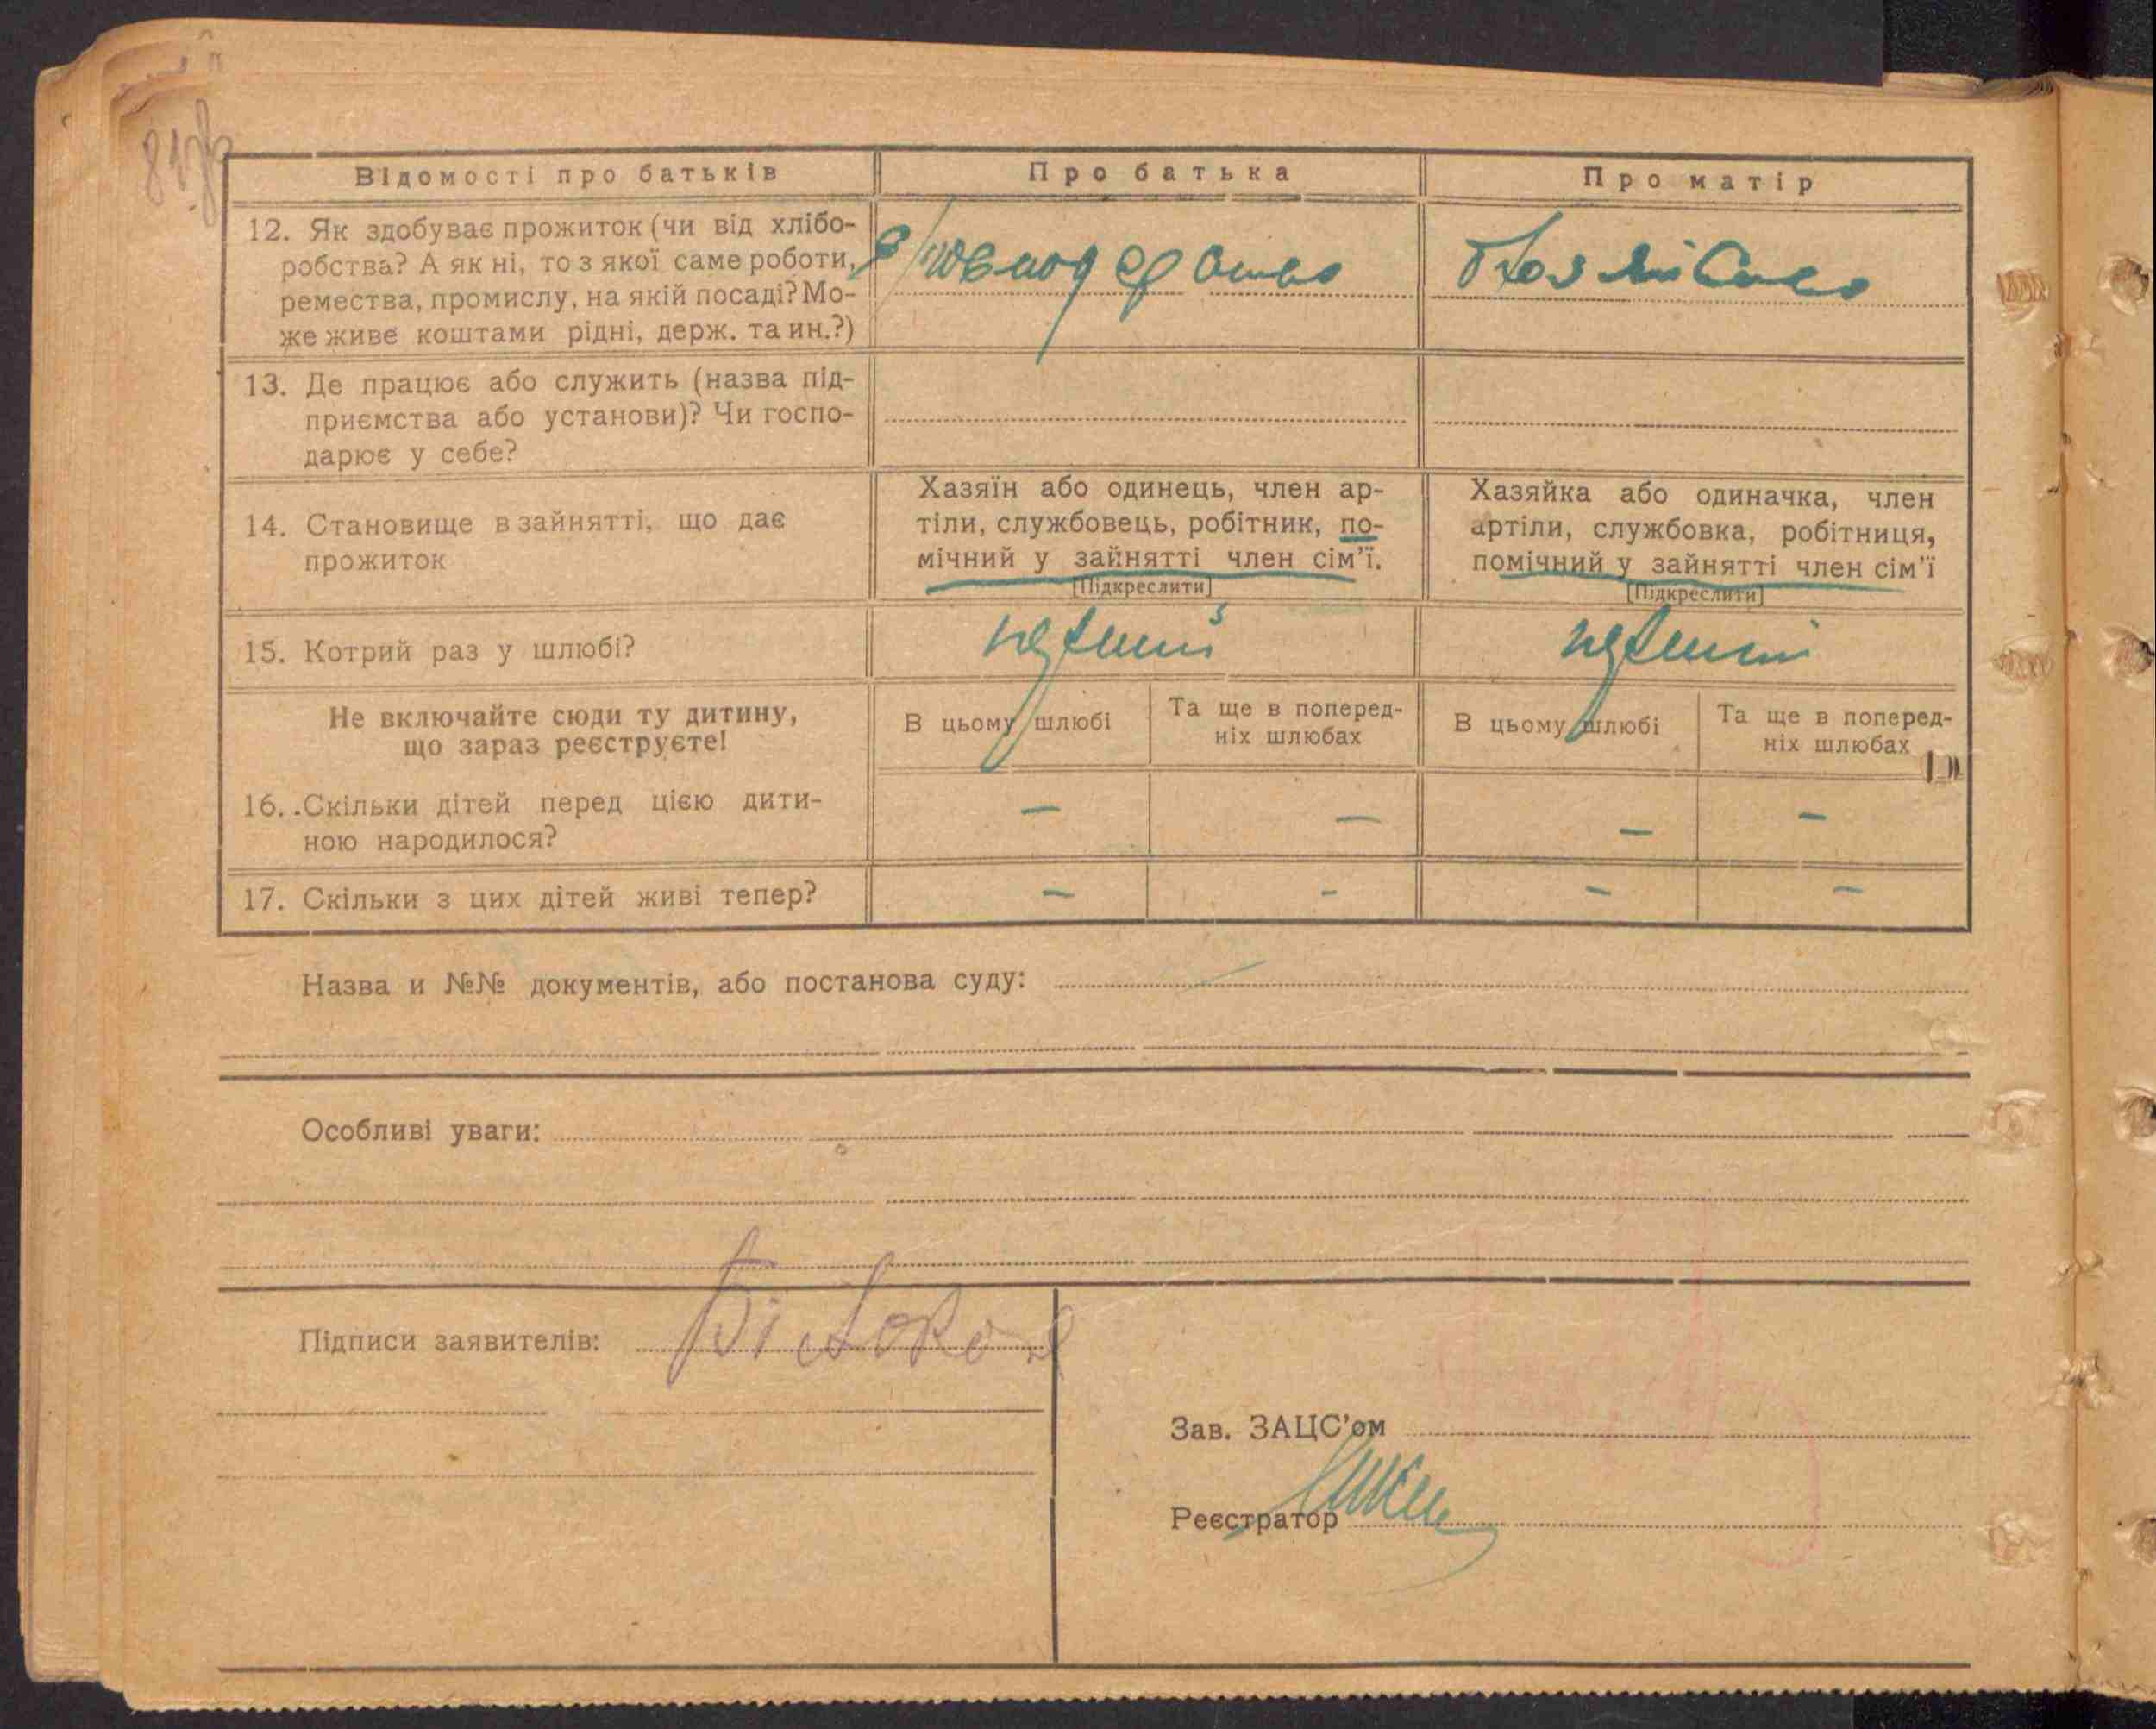 Відомості про батьків
Про батька
Про матір
12. Як здобуває прожиток (чи від хлібо-
робства? А як ні, то з якої саме роботи,
ремества, промислу, на якій посаді? Мо-
же живе коштами рідні, держ. та ин.?)
13. Де працює або служить (назва під-
приємства або установи)? Чи госпо-
дарює у себе?
14. Становище в зайнятті, що дає
прожиток
Хазяїн або одинець, член ар-
тіли, службовець, робітник, по-
мічний у зайнятті член сім'ї.
[Підкреслити]
Хазяйка або одиначка, член
артіли, службовка, робітниця,
помічний у зайнятті член сім'ї
[Підкреслити]
15. Котрий раз у шлюбі?
Не включайте сюди ту дитину,
що зараз реєструєте!
В цьому шлюбі
Та ще в поперед-
ніх шлюбах
В цьому шлюбі
Та ще в поперед-
ніх шлюбах
16. Скільки дітей перед цією дити-
ною народилося?
— — — —
17. Скільки з цих дітей живі тепер?
— - — —
Назва и №№ документів, або постанова суду:
Особливі уваги:
Підписи заявителів:
Зав. ЗАЦС'ом
Реєстратор